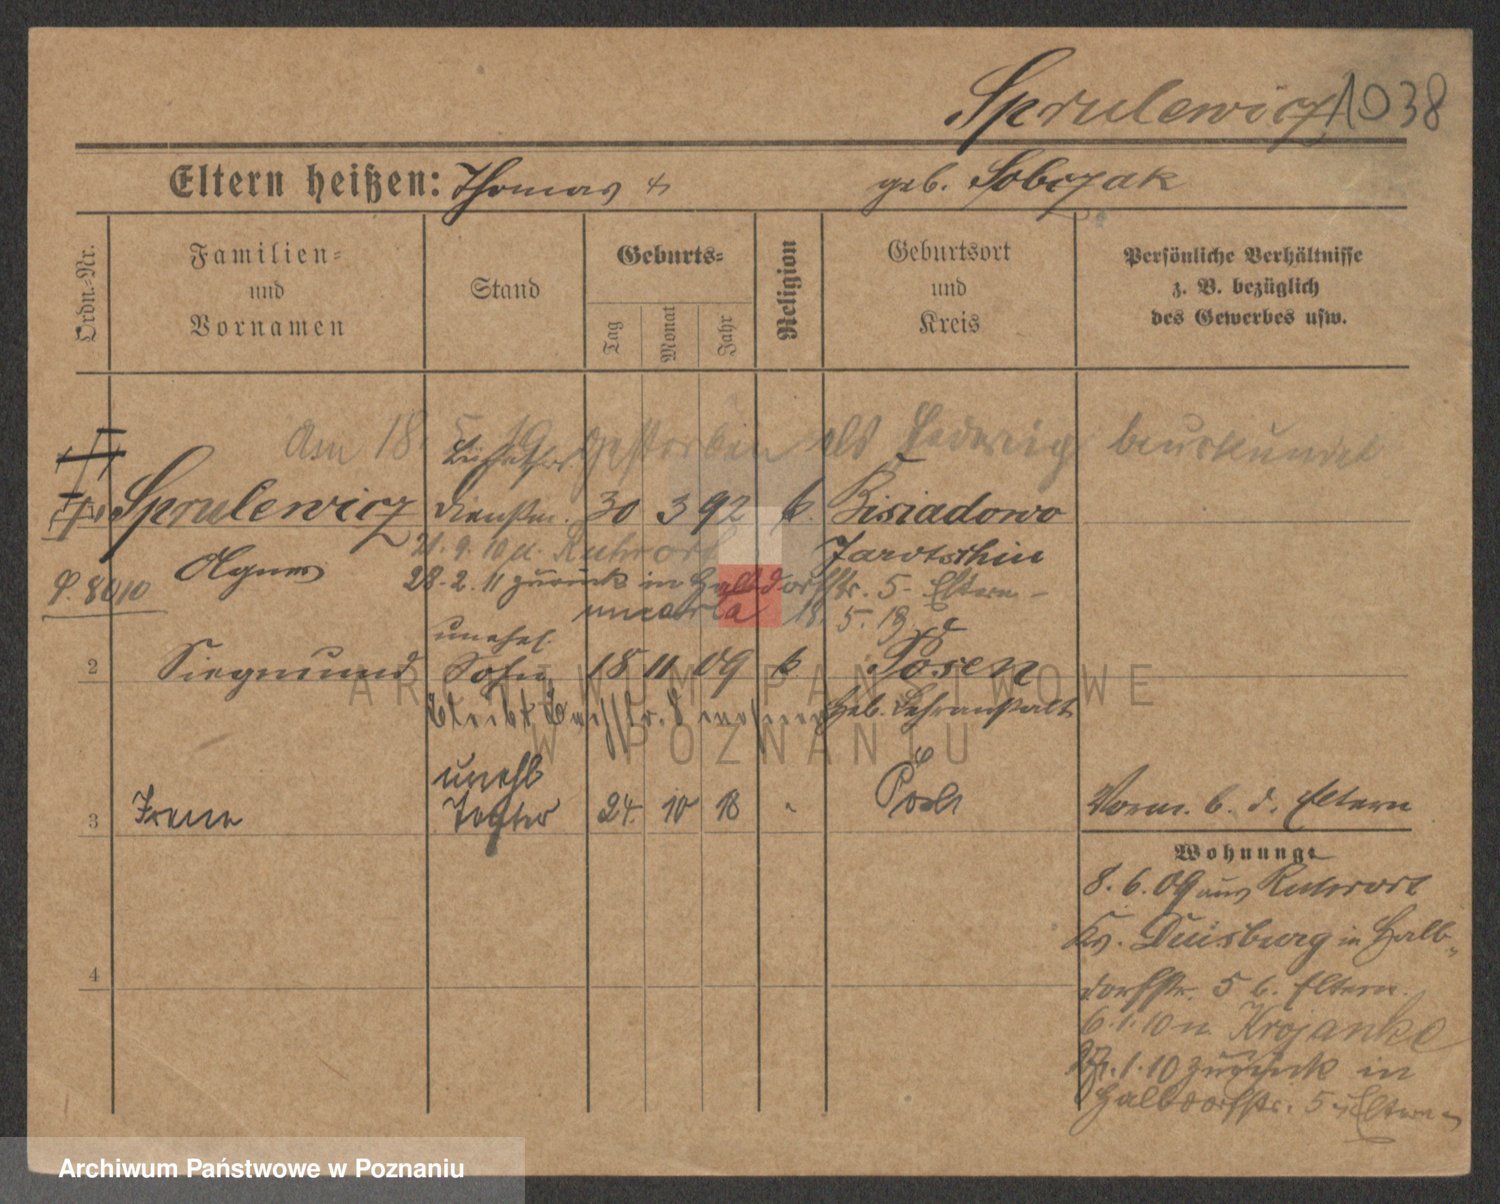 Sprulewicz 1038
Eltern heißen: Thomas + geb. Sobczak
Ordn.-Nr.
Familien-
und
Vornamen
Stand
Geburts-
Tag
Monat
Jahr
Religion
Geburtsort
und
Kreis
Persönliche Verhältnisse
z. B. bezüglich
des Gewerbes usw.
Am 18. gestorben als Hedwig beurkundet
Sprulewicz Dienstm. 30 3 92 k. Bisiadowo
21. 9. 10 n. Ruhrort Jarotschin
Agnes 28. 2. 11 zurück in Halbdorfstr. 5 Eltern
P. 8010
18. 5. 19
unehel.
2 Siegmund Sohn 18 11 09 k. Posen
Heb. Lehranstalt
unehl
3 Irene Tochter 24. 10 18 Posen Vorm. b. d. Eltern
Wohnung:
8. 6. 09 aus Ruhrort
Kr. Duisburg in Halb-
dorfstr. 5 b. Eltern.
6. 1. 10 n. Krojanke
1. 10 zurück in
4
Halbdorfstr. 5 Eltern
ARCHIWUM PAŃSTWOWE
W POZNANIU
Archiwum Państwowe w Poznaniu